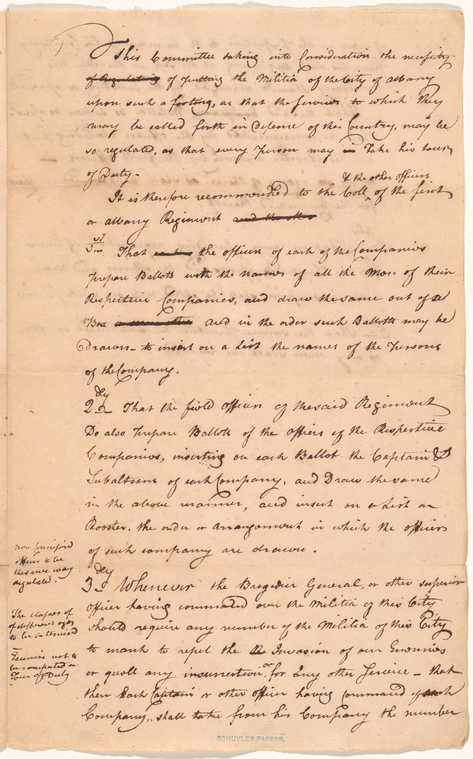 This Committee taking into Consideration the necessity
of Regulating of putting the Militia of the City of Albany
upon such a footing, as that the services to which they
may be called forth in Defence of this Country, may be
so regulated, as that every Person may take his tour
of Duty -
& the other officers
It is therefore recommended to the Coll. of the first
or Albany Regiment
1st That the officers of each of the Companies
prepare Ballots with the names of all the Men of their
Respective Companies, and draw the same out of a
Box and in the order such Ballots may be
Drawn - to insert on a List the names of the Persons
of the Company.
2dly That the field officers of the said Regiment
Do also prepare Ballots of the officers of the Respective
Companies, inserting on each Ballot the Captain &
Subalterns of each Company, and Draw the same
in the above manner, and insert on a List or
Rooster, the order or arrangement in which the officers
of such company are drawn.
3dly Whenever the Brigadier General, or other superior
officer having command over the Militia of this City
should require any number of the Militia of this City
to march to repel the Invasion of our Enemies
or quell any insurrection, or for any other Service - that
then Each Captain or other officer having command of such
Company, shall take from his Company the number
non Comissiond
officers to be
the same way
regulated.
The
of officers
to be
not to
be computed a
Tour of Duty
SCHUYLER PAPERS.